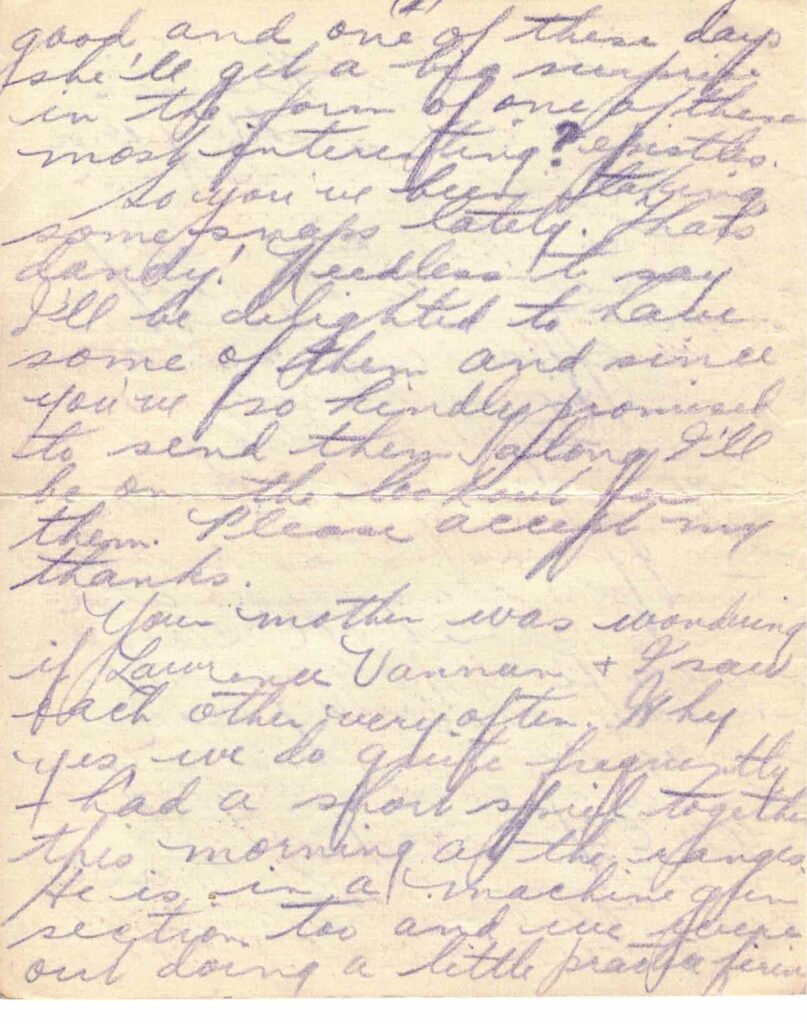 good and one of these days
she'll get a big surprise
in the form of one of these
most interesting? epistles.
So you've been taking
some snaps lately. Thats
dandy! Needless to say
I'll be delighted to have
some of them and since
you've so kindly promised
to send them along I'll
be on the lookout for
them. Please accept my
thanks.
Your mother was wondering
if Lawrence Vannan + I saw
each other very often. Why
yes, we do quite frequently
+ had a short spiel together
this morning at the ranges.
He is in a machine gun
section too and we were
out doing a little practice firing